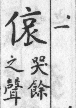 偯
哭餘
之聲